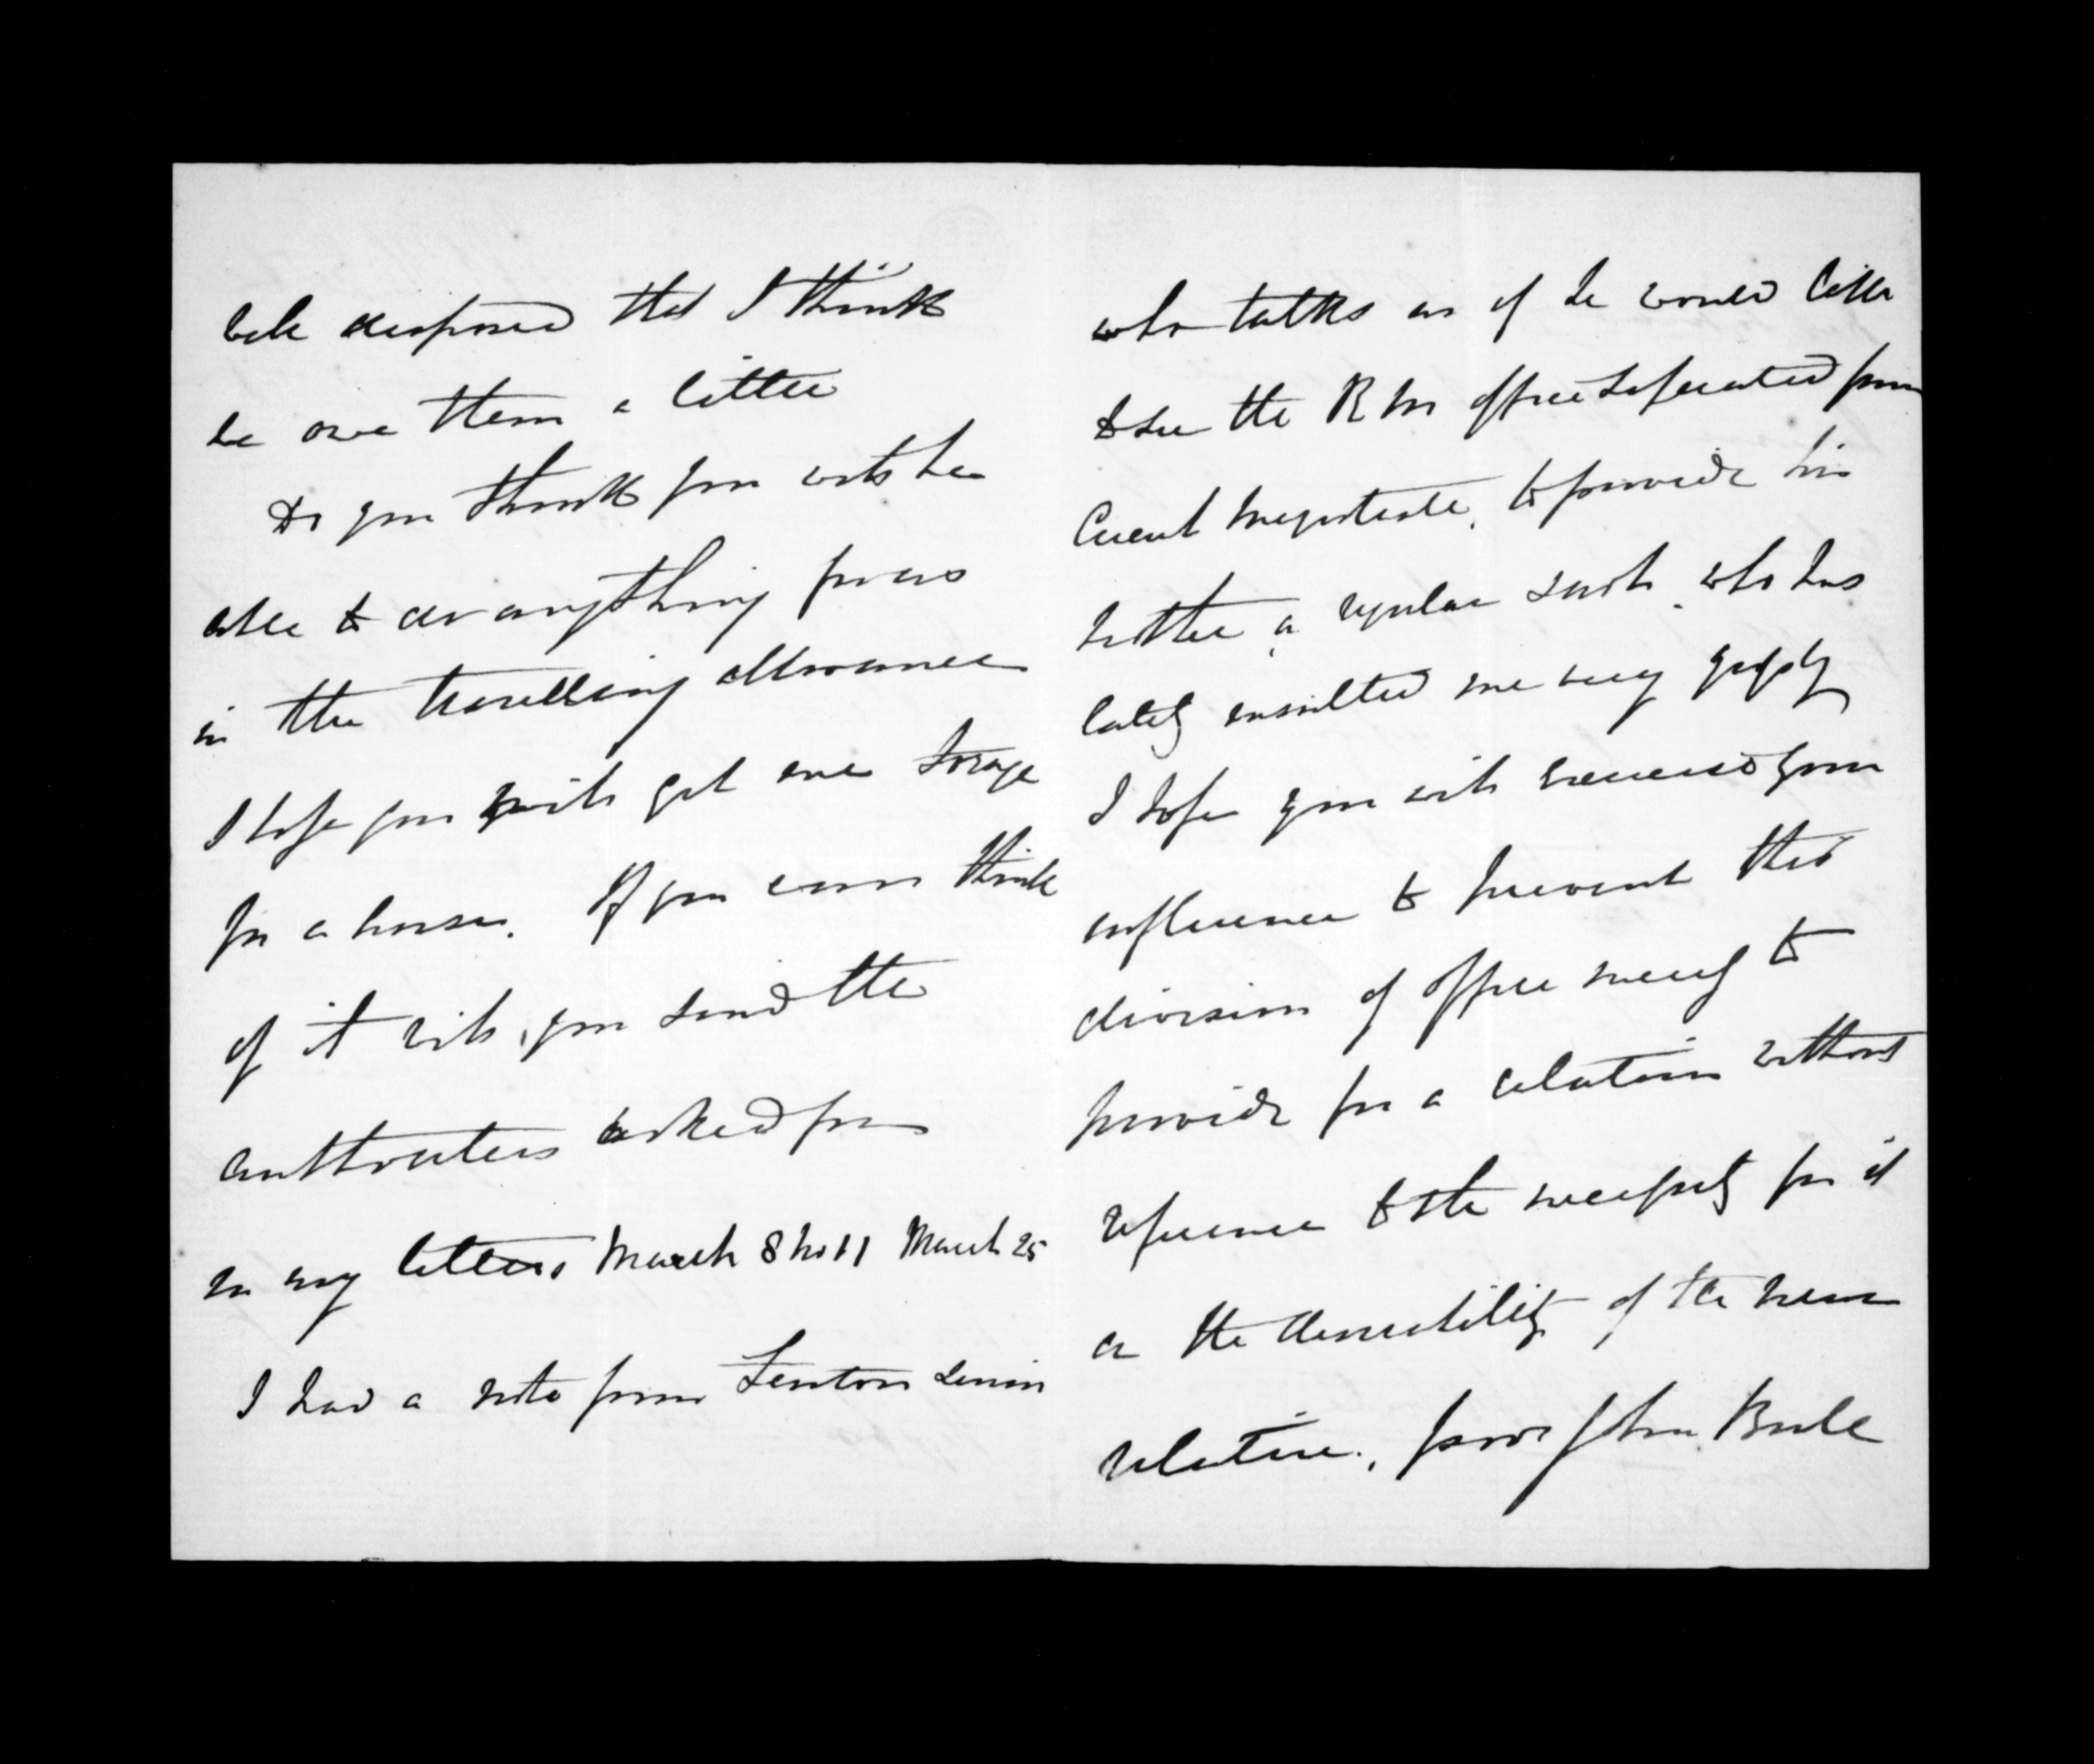 well disposed that I think
we owe them a little
Do you think you will be
able to do anything for us
in the travelling allowance
I hope you will get me forage
for a horse. If you ever think
of it will you send the
authorities asked for
in my letters March 8 No 11 March 25
I had a note from Fenton Senior
who talks as if he would like
to see the R M office separated from
Court Magistrate, to provide his
brother, a regular snob, who has
lately insulted me very grossly
I hope you will exercise your
influence to prevent this
division of office merely to
provide for a relation without
reference to the necessity for it
or the desirability of the new
relation, poor John Bull